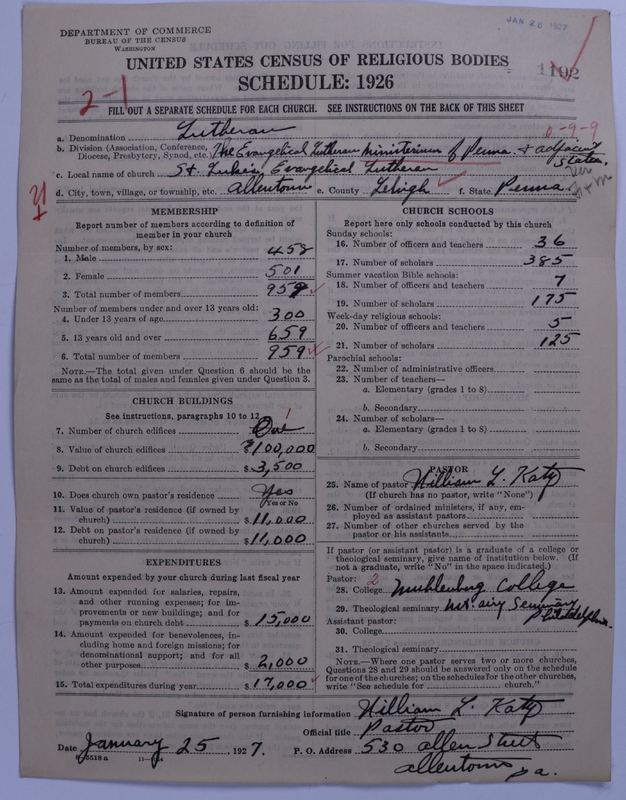 DEPARTMENT OF COMMERCE
BUREAU OF THE CENSUS
WASHINGTON
JAN 26 1927
UNITED STATES CENSUS OF RELIGIOUS BODIES
SCHEDULE: 1926
1192
2-1
FILL OUT A SEPARATE SCHEDULE FOR EACH CHURCH. SEE INSTRUCTIONS ON THE BACK OF THIS SHEET
a. Denomination Lutheran
0-9-9
b. Division (Association, Conference, Diocese, Presbytery, Synod, etc.) The Evangelical Lutheran Ministerium of Penna. & adjacent States.
c. Local name of church St. Lukes Evangelical Lutheran
d. City, town, village, or township, etc. Allentown e. County Lehigh f. State Penna
MEMBERSHIP
Report number of members according to definition of
member in your church
Number of members, by sex:
1. Male 458
2. Female 501
3. Total number of members 959
Number of members under and over 13 years old:
4. Under 13 years of age 300
5. 13 years old and over 659
6. Total number of members 959
NOTE.—The total given under Question 6 should be
same as the total of males and females given under Question 3.
CHURCH BUILDINGS
See instructions, paragraphs 10 to 12
7. Number of church edifices One 1
8. Value of church edifices $100,000
9. Debt on church edifices $3,500
10. Does church own pastor's residence Yes
Yes or No
11. Value of pastor's residence (if owned by
church) $11,000
12. Debt on pastor's residence (if owned by
church) $11,000
EXPENDITURES
Amount expended by your church during last fiscal year
13. Amount expended for salaries, repairs,
and other running expenses; for im-
provements or new buildings; and for
payments on church debt $15,000
14. Amount expended for benevolences, in-
cluding home and foreign missions; for
denominational support; and for all
other purposes $2,000
15. Total expenditures during year $17,000
CHURCH SCHOOLS
Report here only schools conducted by this church
Sunday schools:
16. Number of officers and teachers 36
17. Number of scholars 385
Summer vacation Bible schools:
18. Number of officers and teachers 7
19. Number of scholars 175
Week-day religious schools:
20. Number of officers and teachers 5
21. Number of scholars 125
Parochial schools:
22. Number of administrative officers
23. Number of teachers—
a. Elementary (grades 1 to 8)
b. Secondary
24. Number of scholars—
a. Elementary (grades 1 to 8)
b. Secondary
PASTOR
25. Name of pastor William L. Katz
(If church has no pastor, write "None")
26. Number of ordained ministers, if any, em-
ployed as assistant pastors
27. Number of other churches served by the
pastor or his assistants
If pastor (or assistant pastor) is a graduate of a college or
theological seminary, give name of institution below. (If
not a graduate, write "No" in the space indicated.)
Pastor: 2
28. College Muhlenberg College
29. Theological seminary Mt. Airy Seminary Philadelphia
Assistant pastor:
30. College
31. Theological seminary
NOTE.—Where one pastor serves two or more churches,
Questions 28 and 29 should be answered only on the schedule
for one of the churches; on the schedules for the other churches,
write "See schedule for church."
Signature of person furnishing information William L. Katz
Official title Pastor
Date January 25, 1927. P. O. Address 530 Allen Street
Allentown Pa.